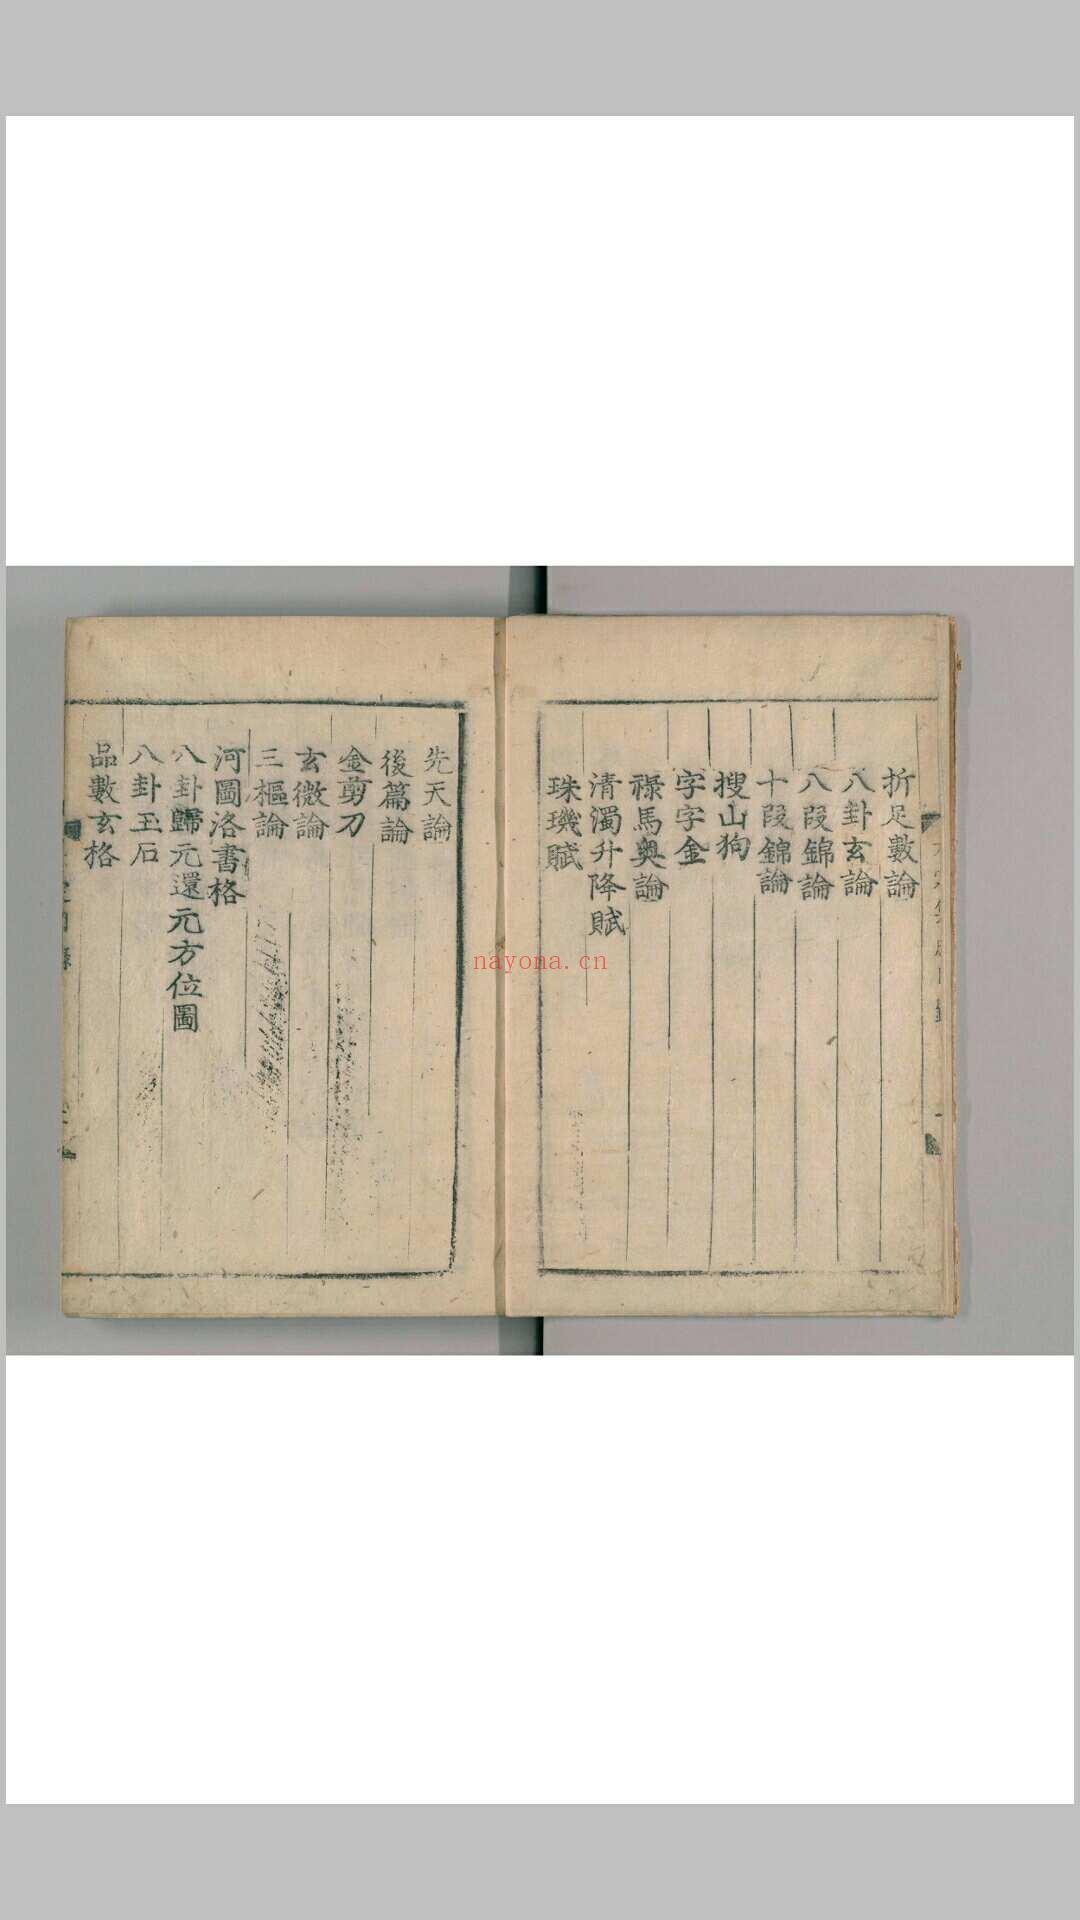 折足數論
八卦玄論
八段錦論
十段錦論
搜山狗
字字金
祿馬奧論
清濁升降賦
珠璣賦
先天論
後篇論
金剪刀
玄微論
三樞論
河圖洛書格
八卦歸元還元方位圖
八卦玉石
品數玄格
nayona.cn